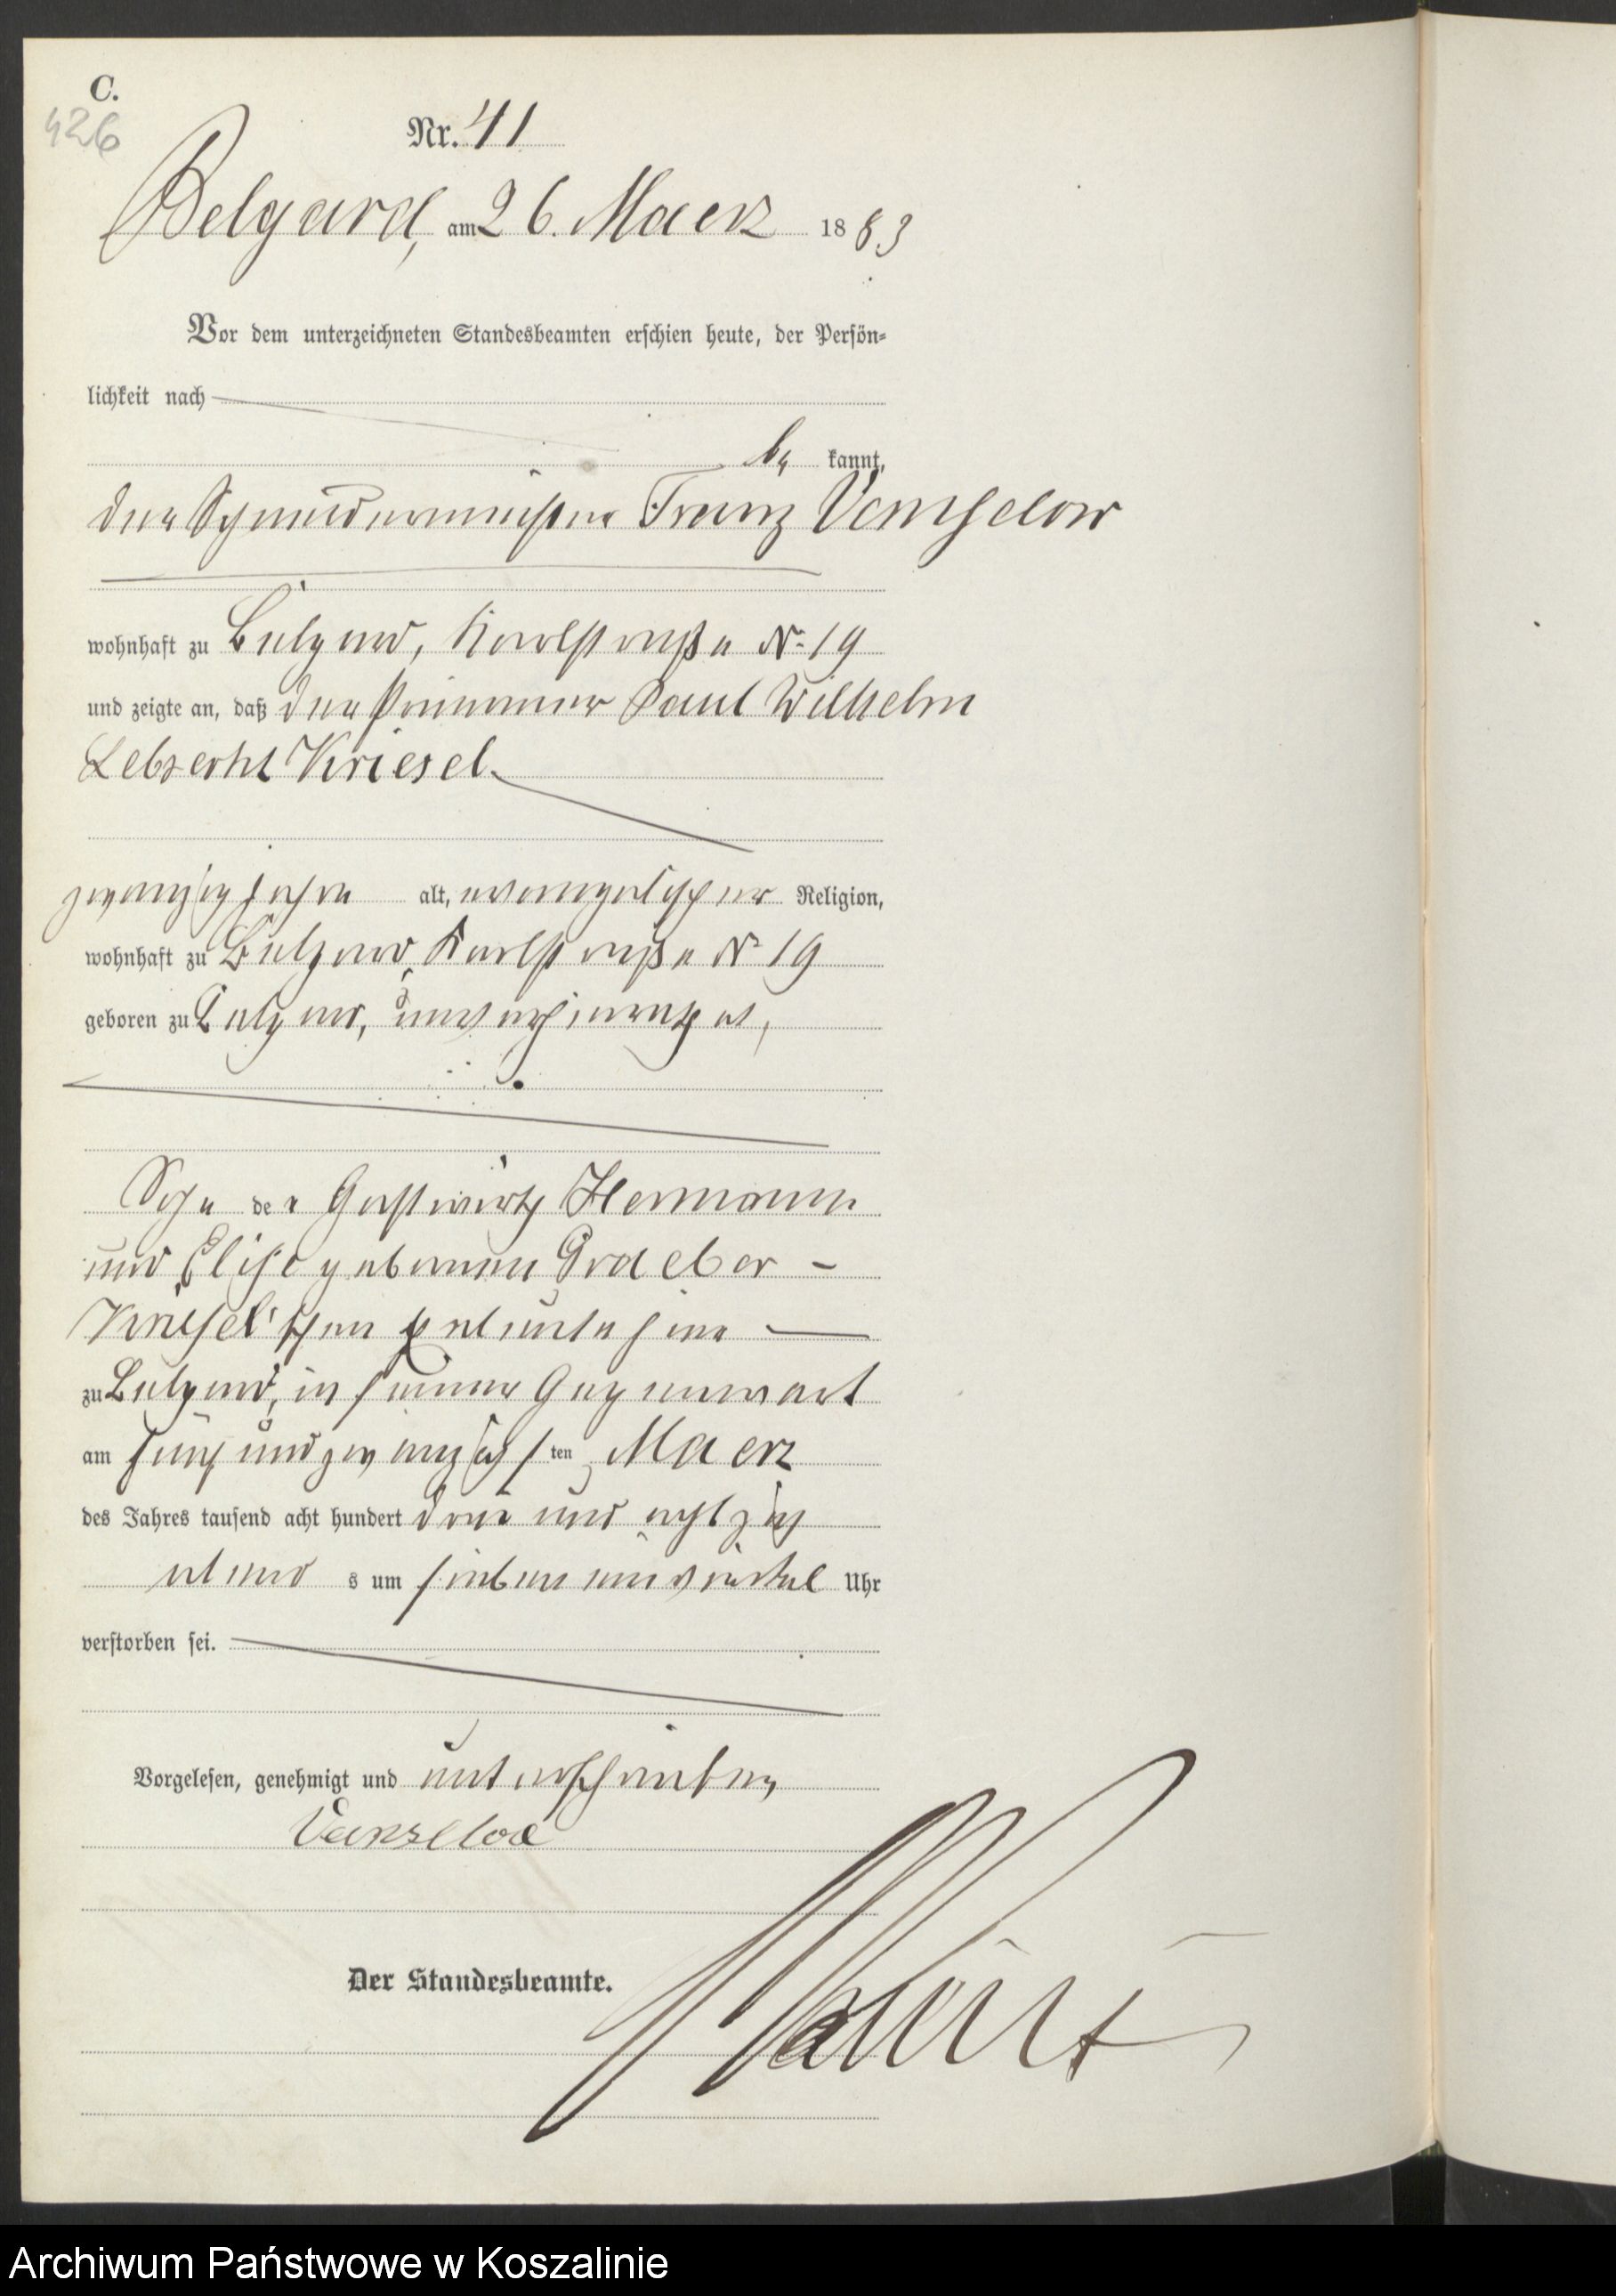 C.
426
Nr. 41
Belgard, am 26. Maerz 1883
Vor dem unterzeichneten Standesbeamten erschien heute, der Persön-
lichkeit nach
be kannt,
der Schneidermeister Franz Venselow
wohnhaft zu Belgard, Karlstraße No 19
und zeigte an, daß der Primaner Paul Wilhelm
Lebrecht Kriesel
zwanzig Jahre alt, evangelischer Religion,
wohnhaft zu Belgard, Karlstraße No 19
geboren zu Belgard, unverheirathet,
Sohn der Gastwirth Hermann
und Elise geborenen Graeber –
Kriesel'schen Eheleute hier
zu Belgard, in seiner Gegenwart
am fünfundzwanzigsten Maerz
des Jahres tausend acht hundert drei und achtzig
abends um sieben einviertel Uhr
verstorben sei.
Vorgelesen, genehmigt und unterschrieben,
Venselow
Der Standesbeamte.
Archiwum Państwowe w Koszalinie